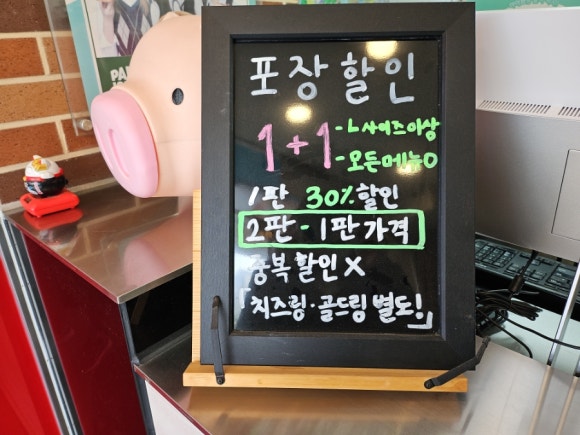 포장할인
1+1
-L사이즈이상
-모든메뉴O
1판 30% 할인
2판 - 1판 가격
중복할인X
「치즈링·골드링 별도!」